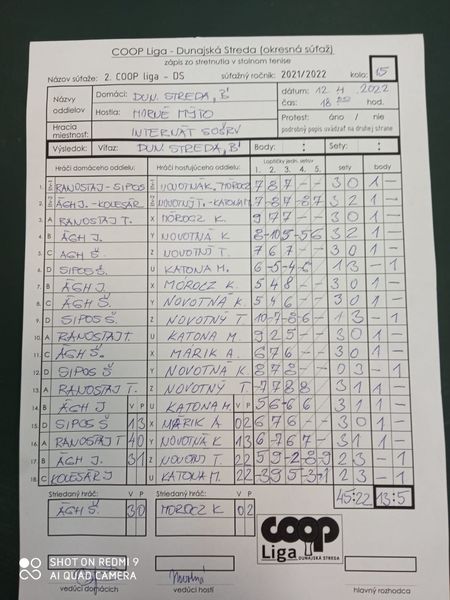 COOP Liga - Dunajská Streda (okresná súťaž)
zápis zo stretnutia v stolnom tenise
Názov súťaže: 2. COOP liga - DS súťažný ročník: 2021/2022 kolo: 15
Názvy oddielov Domáci: DUN. STREDA „B" dátum: 12 4 2022
Hostia: HORNÉ MÝTO čas: 18 00 hod.
Hracia miestnosť: INTERNÁT SOŠRV Protest: áno / nie
podrobný popis uvádzať na druhej strane
Výsledok: Víťaz: DUN. STREDA „B" Body: : Sety: :
Hráči domáceho oddielu: Hráči hosťujúceho oddielu: Loptičky jedn. setov sety body
1. 2. 3. 4. 5.
1. RANOSTAJ - SIPOS NOVOTNÁK, MOROCZ 7 8 7 - - 3 0 1 -
2. ÁGH J. - KOLESÁR NOVOTNÝ T. - KATONA M. 7 -8 7 -8 7 3 2 1 -
3. A RANOSTAJ T. X MÓROCZ K. 9 7 7 - - 3 0 1 -
4. B ÁGH J. Y NOVOTNÁ K 8 -10 5 -5 6 3 2 1 -
5. C ÁGH Š. Z NOVOTNÝ T. 7 6 7 - - 3 0 1 -
6. D SIPOS Š. U KATONA M. 6 -5 -4 -6 1 3 - 1
7. B ÁGH J. X MÓROCZ K. 5 4 8 - - 3 0 1 -
8. C ÁGH Š. Y NOVOTNÁ K. 5 4 6 - - 3 0 1 -
9. D SIPOS Š. Z NOVOTNÝ T. 10 -7 -8 -6 - 1 3 - 1
10. A RANOSTAJ T. U KATONA M. 9 2 5 - - 3 0 1 -
11. C ÁGH Š. X MARIK A. 6 7 6 - - 3 0 1 -
12. D SIPOS Š. Y NOVOTNÁ K. -8 7 8 - - 0 3 - 1
13. A RANOSTAJ T. Z NOVOTNÝ T -7 7 8 8 3 1 1 -
14. B ÁGH J V P U KATONA M. V P 5 6 -6 6 3 1 1 -
15. D SIPOS Š 1 3 X MÁRIK A 0 2 6 7 6 - - 3 0 1 -
16. A RANOSTAJ T 4 0 Y NOVOTNÁ K 1 3 6 -7 6 7 - 3 1 1 -
17. B ÁGH J. 3 1 Z NOVOTNÝ T. 2 2 -5 9 -2 8 -9 2 3 - 1
18. C KOLESÁR J U KATONA M. 2 2 -3 9 5 -3 -1 2 3 - 1
Striedaný hráč: V P Striedaný hráč: V P 45:22 13:5
ÁGH Š. 3 0 MOROCZ K 0 2
coop
Liga DUNAJSKÁ STREDA
vedúci domácich vedúci hostí hlavný rozhodca
SHOT ON REDMI 9
AI QUAD CAMERA